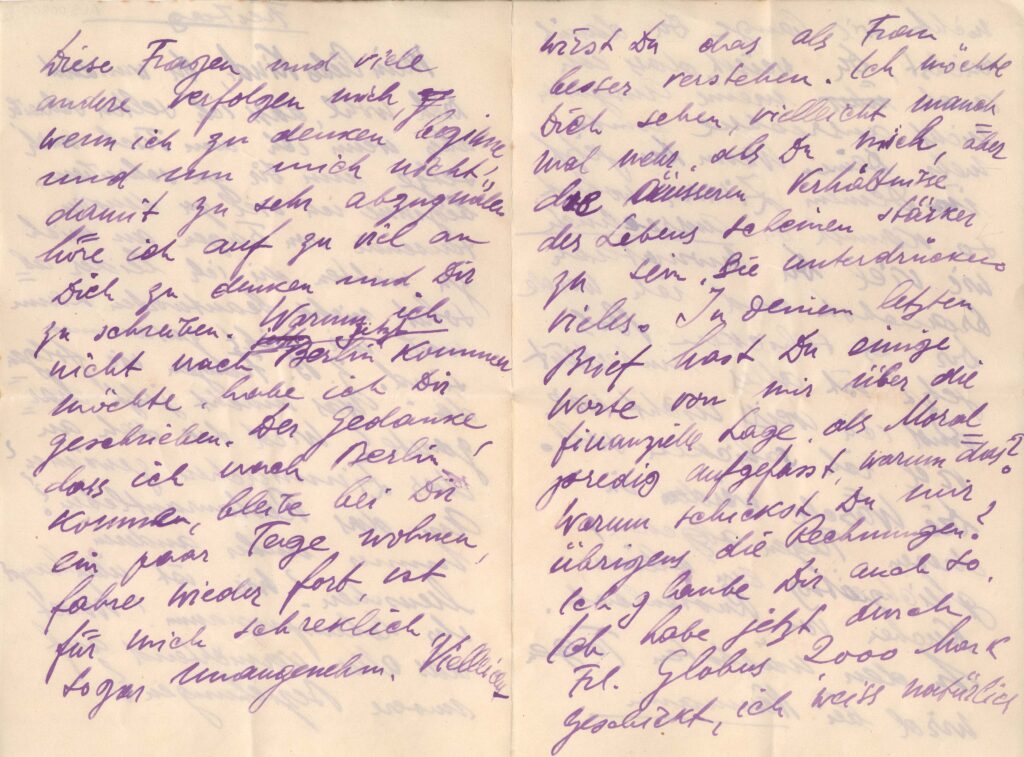 Diese Fragen und viele
andere verfolgen mich,
wenn ich zu denken beginne
und um mich nicht
damit zu sehr abzuquälen
höre ich auf zu viel an
Dich zu denken und Dir
zu schreiben. Warum ich
jetzt
nicht nach Berlin kommen
möchte, habe ich Dir
geschrieben. Der Gedanke
dass ich nach Berlin
kommen, bleibe bei Dir
ein paar Tage wohnen,
fahre wieder fort, ist
für mich schreklich
sogar unangenehm. Vielleicht
wirst Du das als Frau
besser verstehen. Ich möchte
Dich sehen, vielleicht manch
mal mehr, als Du mich, aber
die äusseren Verhältnisse
des Lebens scheinen stärker
zu sein. Sie unterdrücken
vieles. In deinem letzten
Brief hast Du einige
Worte von mir über die
finanzielle Lage, als Moral
predig aufgefasst, warum das?
Warum schickst Du mir
übrigens die Rechnungen?
Ich glaube Dir auch so.
Ich habe jetzt durch
Frl. Globus 2000 Mark
geschickt, ich weiss natürlich